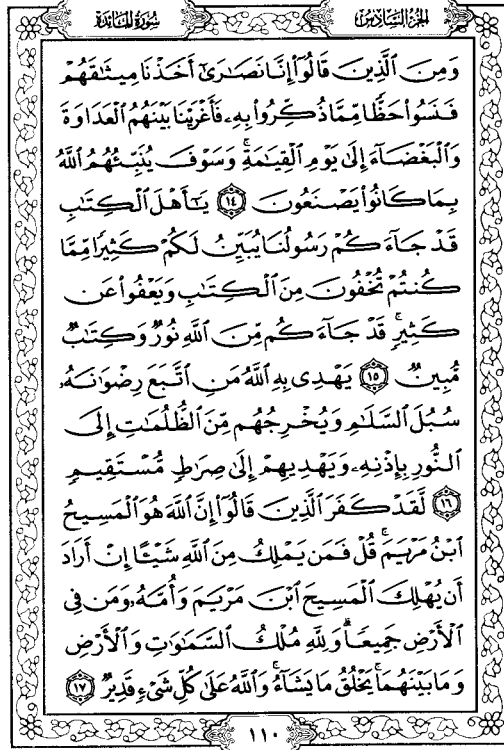 سُورَةُ المَائِدَة
الجُزْءُ السَّادِسُ
وَمِنَ ٱلَّذِينَ قَالُوٓا۟ إِنَّا نَصَٰرَىٰٓ أَخَذْنَا مِيثَٰقَهُمْ
فَنَسُوا۟ حَظًّا مِّمَّا ذُكِّرُوا۟ بِهِۦ فَأَغْرَيْنَا بَيْنَهُمُ ٱلْعَدَاوَةَ
وَٱلْبَغْضَآءَ إِلَىٰ يَوْمِ ٱلْقِيَٰمَةِ ۚ وَسَوْفَ يُنَبِّئُهُمُ ٱللَّهُ
بِمَا كَانُوا۟ يَصْنَعُونَ ١٤ يَٰٓأَهْلَ ٱلْكِتَٰبِ
قَدْ جَآءَكُمْ رَسُولُنَا يُبَيِّنُ لَكُمْ كَثِيرًا مِّمَّا
كُنتُمْ تُخْفُونَ مِنَ ٱلْكِتَٰبِ وَيَعْفُوا۟ عَن
كَثِيرٍ ۚ قَدْ جَآءَكُم مِّنَ ٱللَّهِ نُورٌ وَكِتَٰبٌ
مُّبِينٌ ١٥ يَهْدِى بِهِ ٱللَّهُ مَنِ ٱتَّبَعَ رِضْوَٰنَهُۥ
سُبُلَ ٱلسَّلَٰمِ وَيُخْرِجُهُم مِّنَ ٱلظُّلُمَٰتِ إِلَى
ٱلنُّورِ بِإِذْنِهِۦ وَيَهْدِيهِمْ إِلَىٰ صِرَٰطٍ مُّسْتَقِيمٍ
١٦ لَّقَدْ كَفَرَ ٱلَّذِينَ قَالُوٓا۟ إِنَّ ٱللَّهَ هُوَ ٱلْمَسِيحُ
ٱبْنُ مَرْيَمَ ۚ قُلْ فَمَن يَمْلِكُ مِنَ ٱللَّهِ شَيْـًٔا إِنْ أَرَادَ
أَن يُهْلِكَ ٱلْمَسِيحَ ٱبْنَ مَرْيَمَ وَأُمَّهُۥ وَمَن فِى
ٱلْأَرْضِ جَمِيعًا ۗ وَلِلَّهِ مُلْكُ ٱلسَّمَٰوَٰتِ وَٱلْأَرْضِ
وَمَا بَيْنَهُمَا ۚ يَخْلُقُ مَا يَشَآءُ ۚ وَٱللَّهُ عَلَىٰ كُلِّ شَىْءٍ قَدِيرٌ ١٧
١١٠